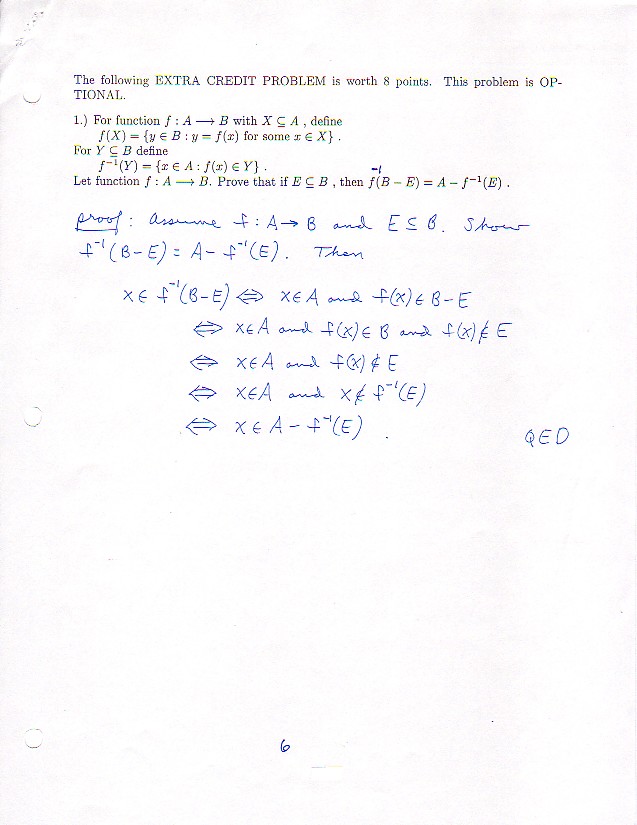 The following EXTRA CREDIT PROBLEM is worth 8 points. This problem is OP-
TIONAL.
1.) For function f : A ⟶ B with X ⊆ A , define
f(X) = {y ∈ B : y = f(x) for some x ∈ X} .
For Y ⊆ B define
f⁻¹(Y) = {x ∈ A : f(x) ∈ Y} .
Let function f : A ⟶ B. Prove that if E ⊆ B , then f⁻¹(B − E) = A − f⁻¹(E) .
proof : Assume f : A → B and E ⊆ B. Show
f⁻¹(B−E) = A − f⁻¹(E). Then
x ∈ f⁻¹(B−E) ⇔ x∈A and f(x) ∈ B−E
⇔ x∈A and f(x) ∈ B and f(x) ∉ E
⇔ x∈A and f(x) ∉ E
⇔ x∈A and x ∉ f⁻¹(E)
⇔ x ∈ A − f⁻¹(E) . QED
6